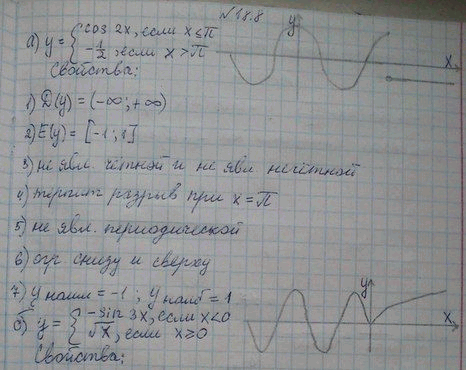 №18.8
а) y = { cos 2x, если x ≤ π
-1/2, если x > π
y
x
Свойства:
1) D(y) = (-∞; +∞)
2) E(y) = [-1; 1]
3) не явл. чётной и не явл. нечётной
4) терпит разрыв при x = π
5) не явл. периодической
6) огр снизу и сверху
7) y наим = -1; y наиб = 1
б) y = { -sin 3x, если x < 0
√x, если x ≥ 0
y
x
Свойства: